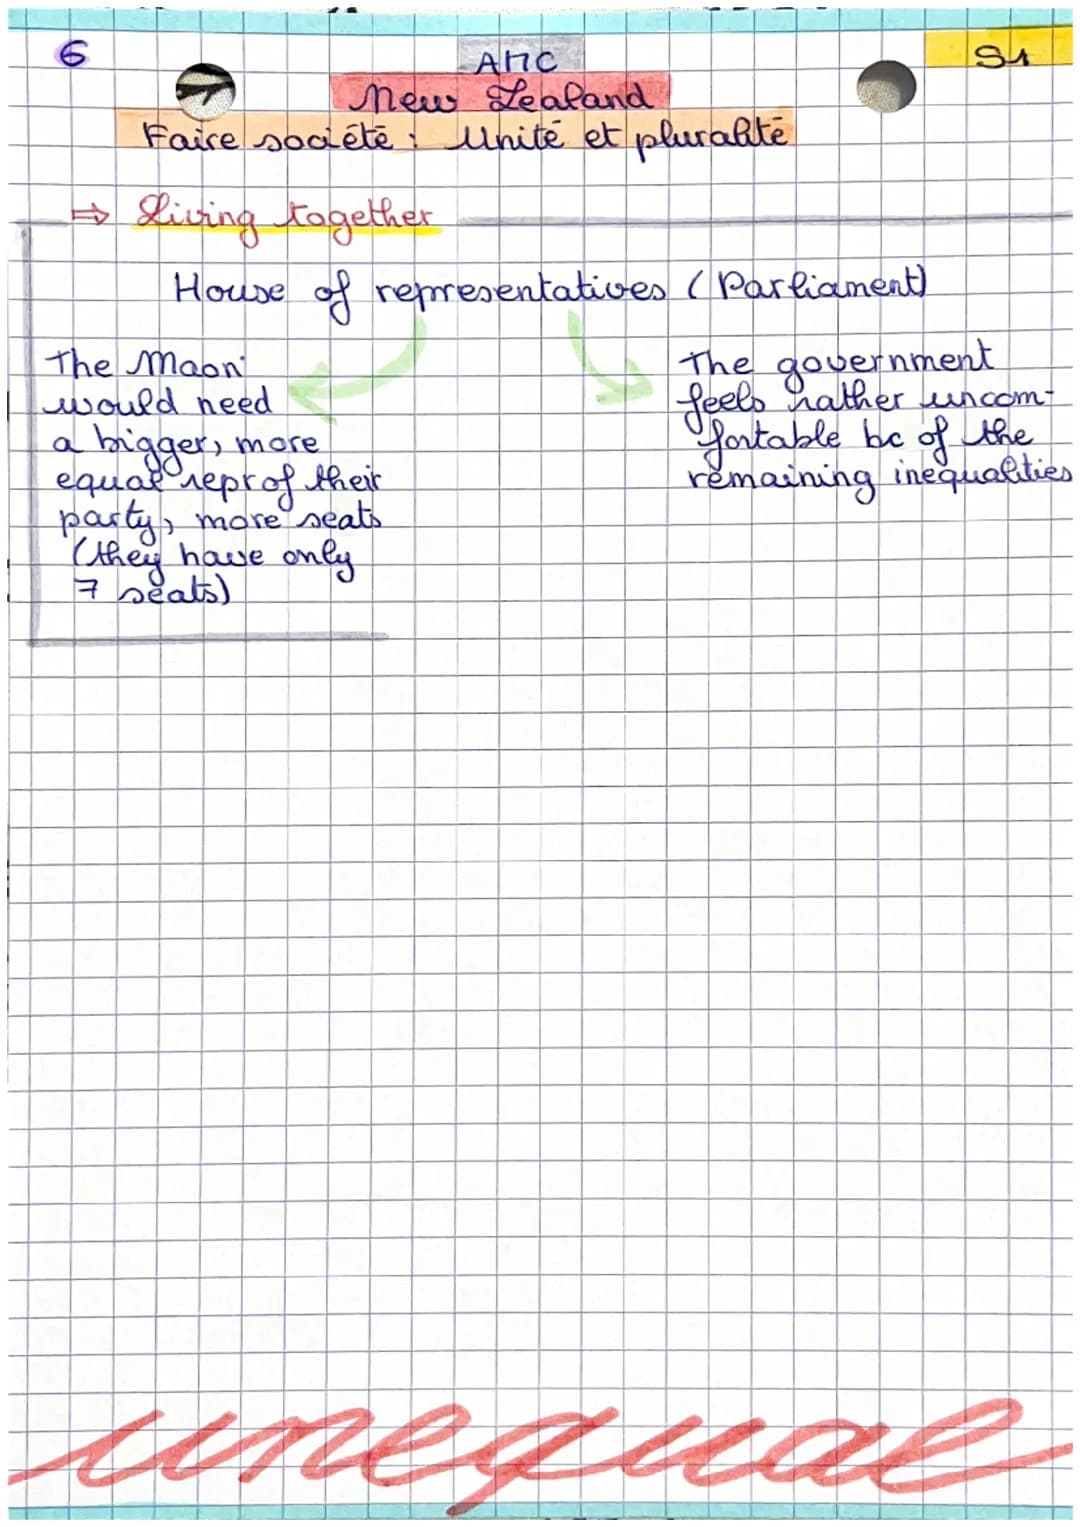 6
AMC
S1
New Zealand
Faire société : Unité et pluralité
⇒ Living together
House of representatives (Parliament)
The Maori
would need
a bigger, more
equal repr of their
party, more seats
(they have only
7 seats)
The government
feels rather uncom-
fortable bc of the
remaining inequalities
unequal